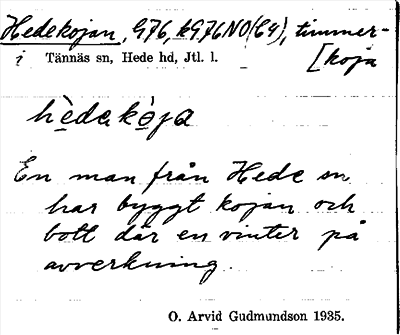 Hedekojan, G76, kG76NO(C4), timmer-
[koja
i Tännäs sn, Hede hd, Jtl. l.
hède,kòja
En man från Hede sn
har byggt kojan och
bott där en vinter på
avverkning.
O. Arvid Gudmundson 1935.